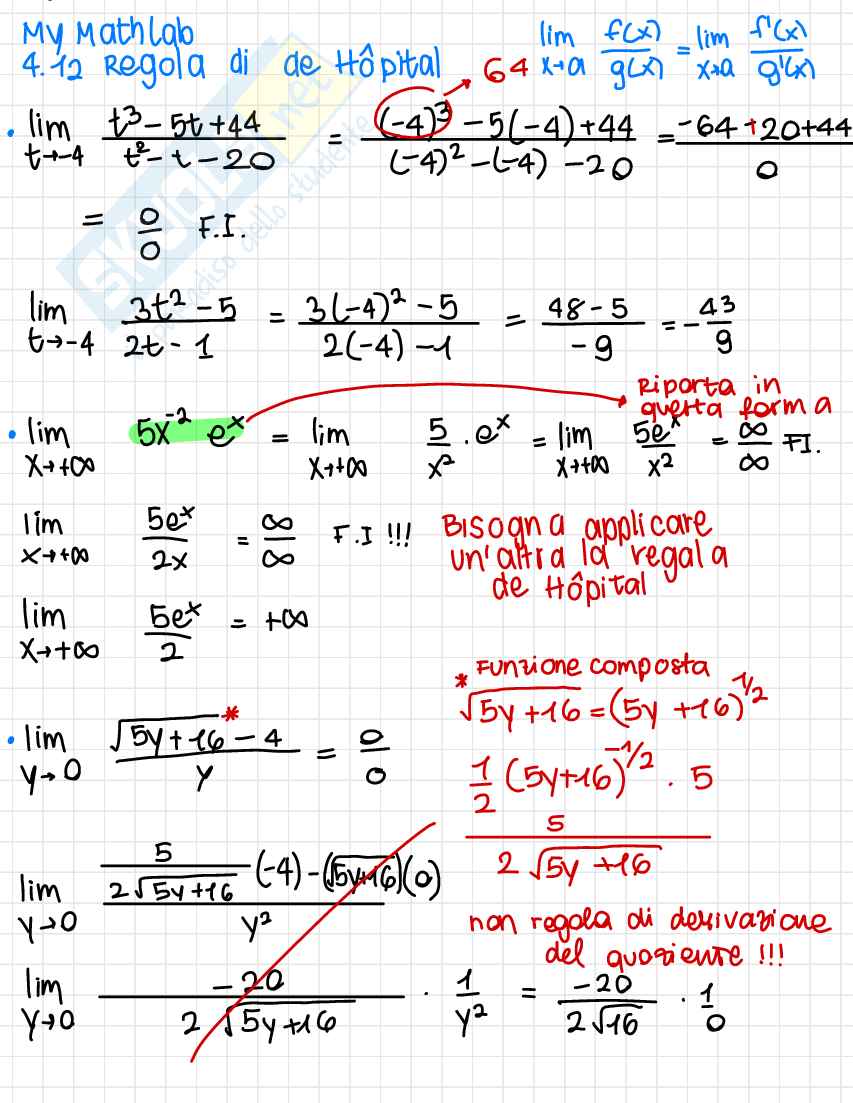 My MathLab
4.12 Regola di de Hôpital
lim x→a f(x)/g(x) = lim x→a f'(x)/g'(x)
64
• lim t→-4 (t³ - 5t + 44)/(t² - t - 20) = ((-4)³ - 5(-4) + 44)/((-4)² - (-4) - 20) = (-64 + 20 + 44)/0
= 0/0 F.I.
lim t→-4 (3t² - 5)/(2t - 1) = (3(-4)² - 5)/(2(-4) - 1) = (48 - 5)/(-9) = -43/9
Riporta in
questa forma
• lim x→+∞ 5x⁻² eˣ = lim x→+∞ 5/x² · eˣ = lim x→+∞ 5eˣ/x² = ∞/∞ FI.
lim x→+∞ 5eˣ/2x = ∞/∞ F.I !!!
Bisogna applicare
un'altra la regala
de Hôpital
lim x→+∞ 5eˣ/2 = +∞
* Funzione composta
√(5y+16) = (5y+16)^1/2
• lim y→0 (√(5y+16)* - 4)/y = 0/0
1/2 (5y+16)^-1/2 · 5
5/(2√(5y+16))
lim y→0 (5/(2√(5y+16)) (-4) - (√(5y+16))(0))/y²
non regola di derivazione
del quoziente !!!
lim y→0 -20/(2√(5y+16)) · 1/y² = -20/(2√16) · 1/0
SKUOLA.net
paradiso dello studente